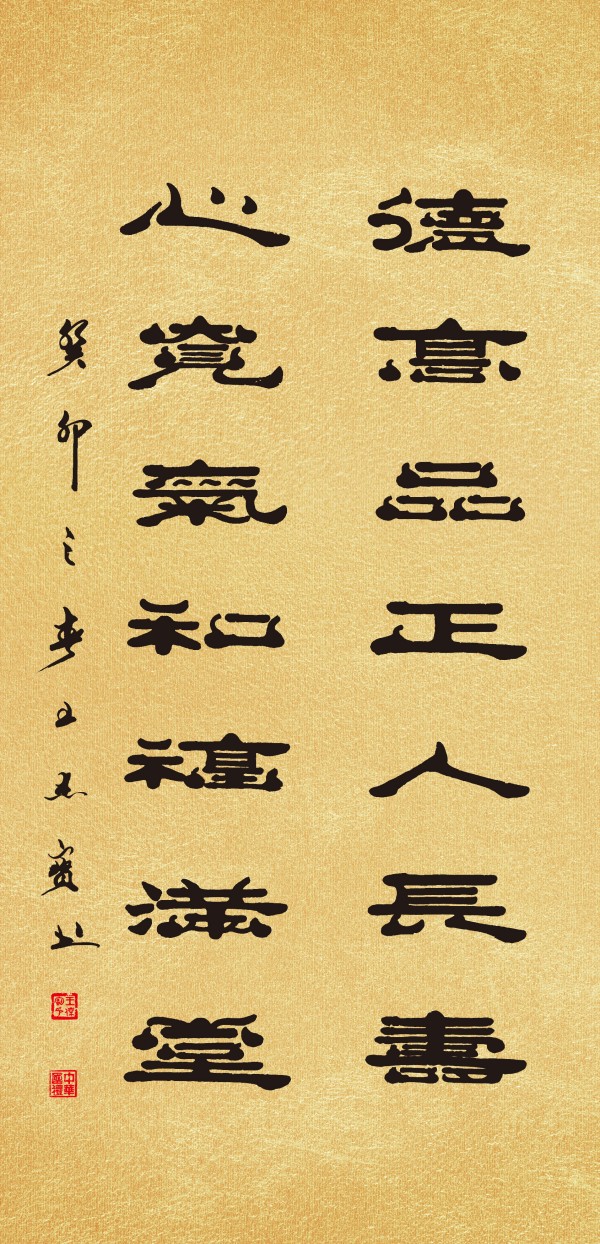 德高品正人長壽
心寬氣和福滿堂
癸卯之春王志寶书
中華